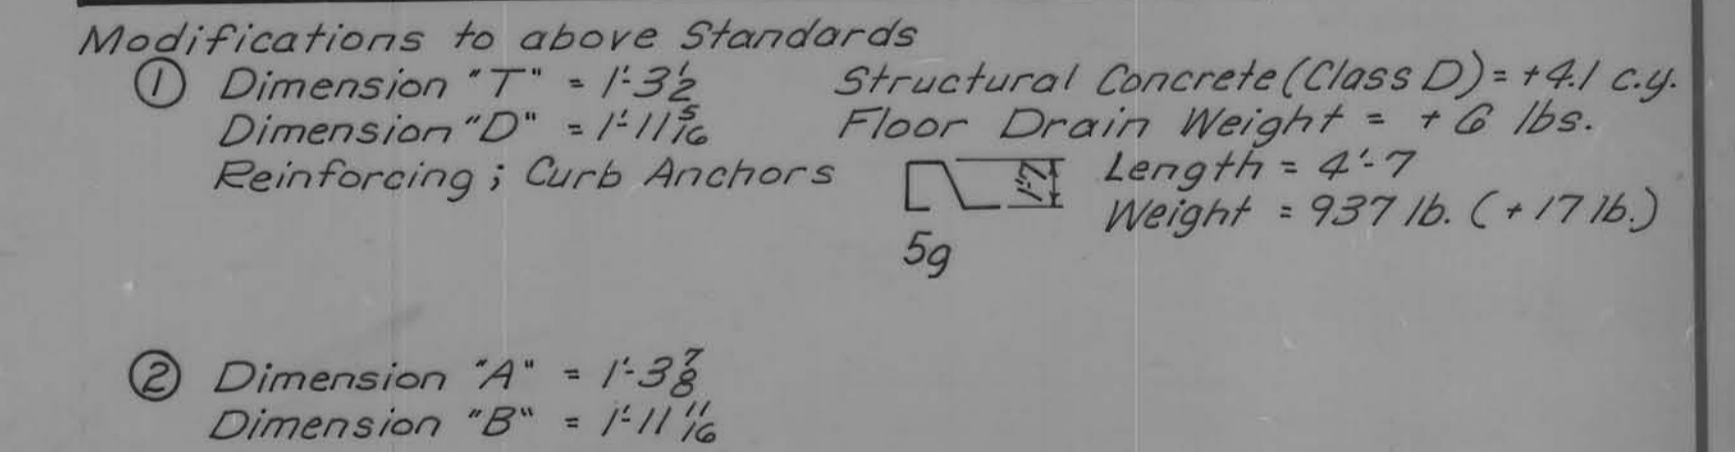 Modifications to above Standards
① Dimension "T" = 1'-3½ Structural Concrete (Class D) = +4.1 c.y.
Dimension "D" = 1'-11 5/16 Floor Drain Weight = + 6 lbs.
Reinforcing ; Curb Anchors Length = 4'-7
Weight = 937 lb. (+17 lb.)
5g
② Dimension "A" = 1'-3⅞
Dimension "B" = 1'-11 11/16